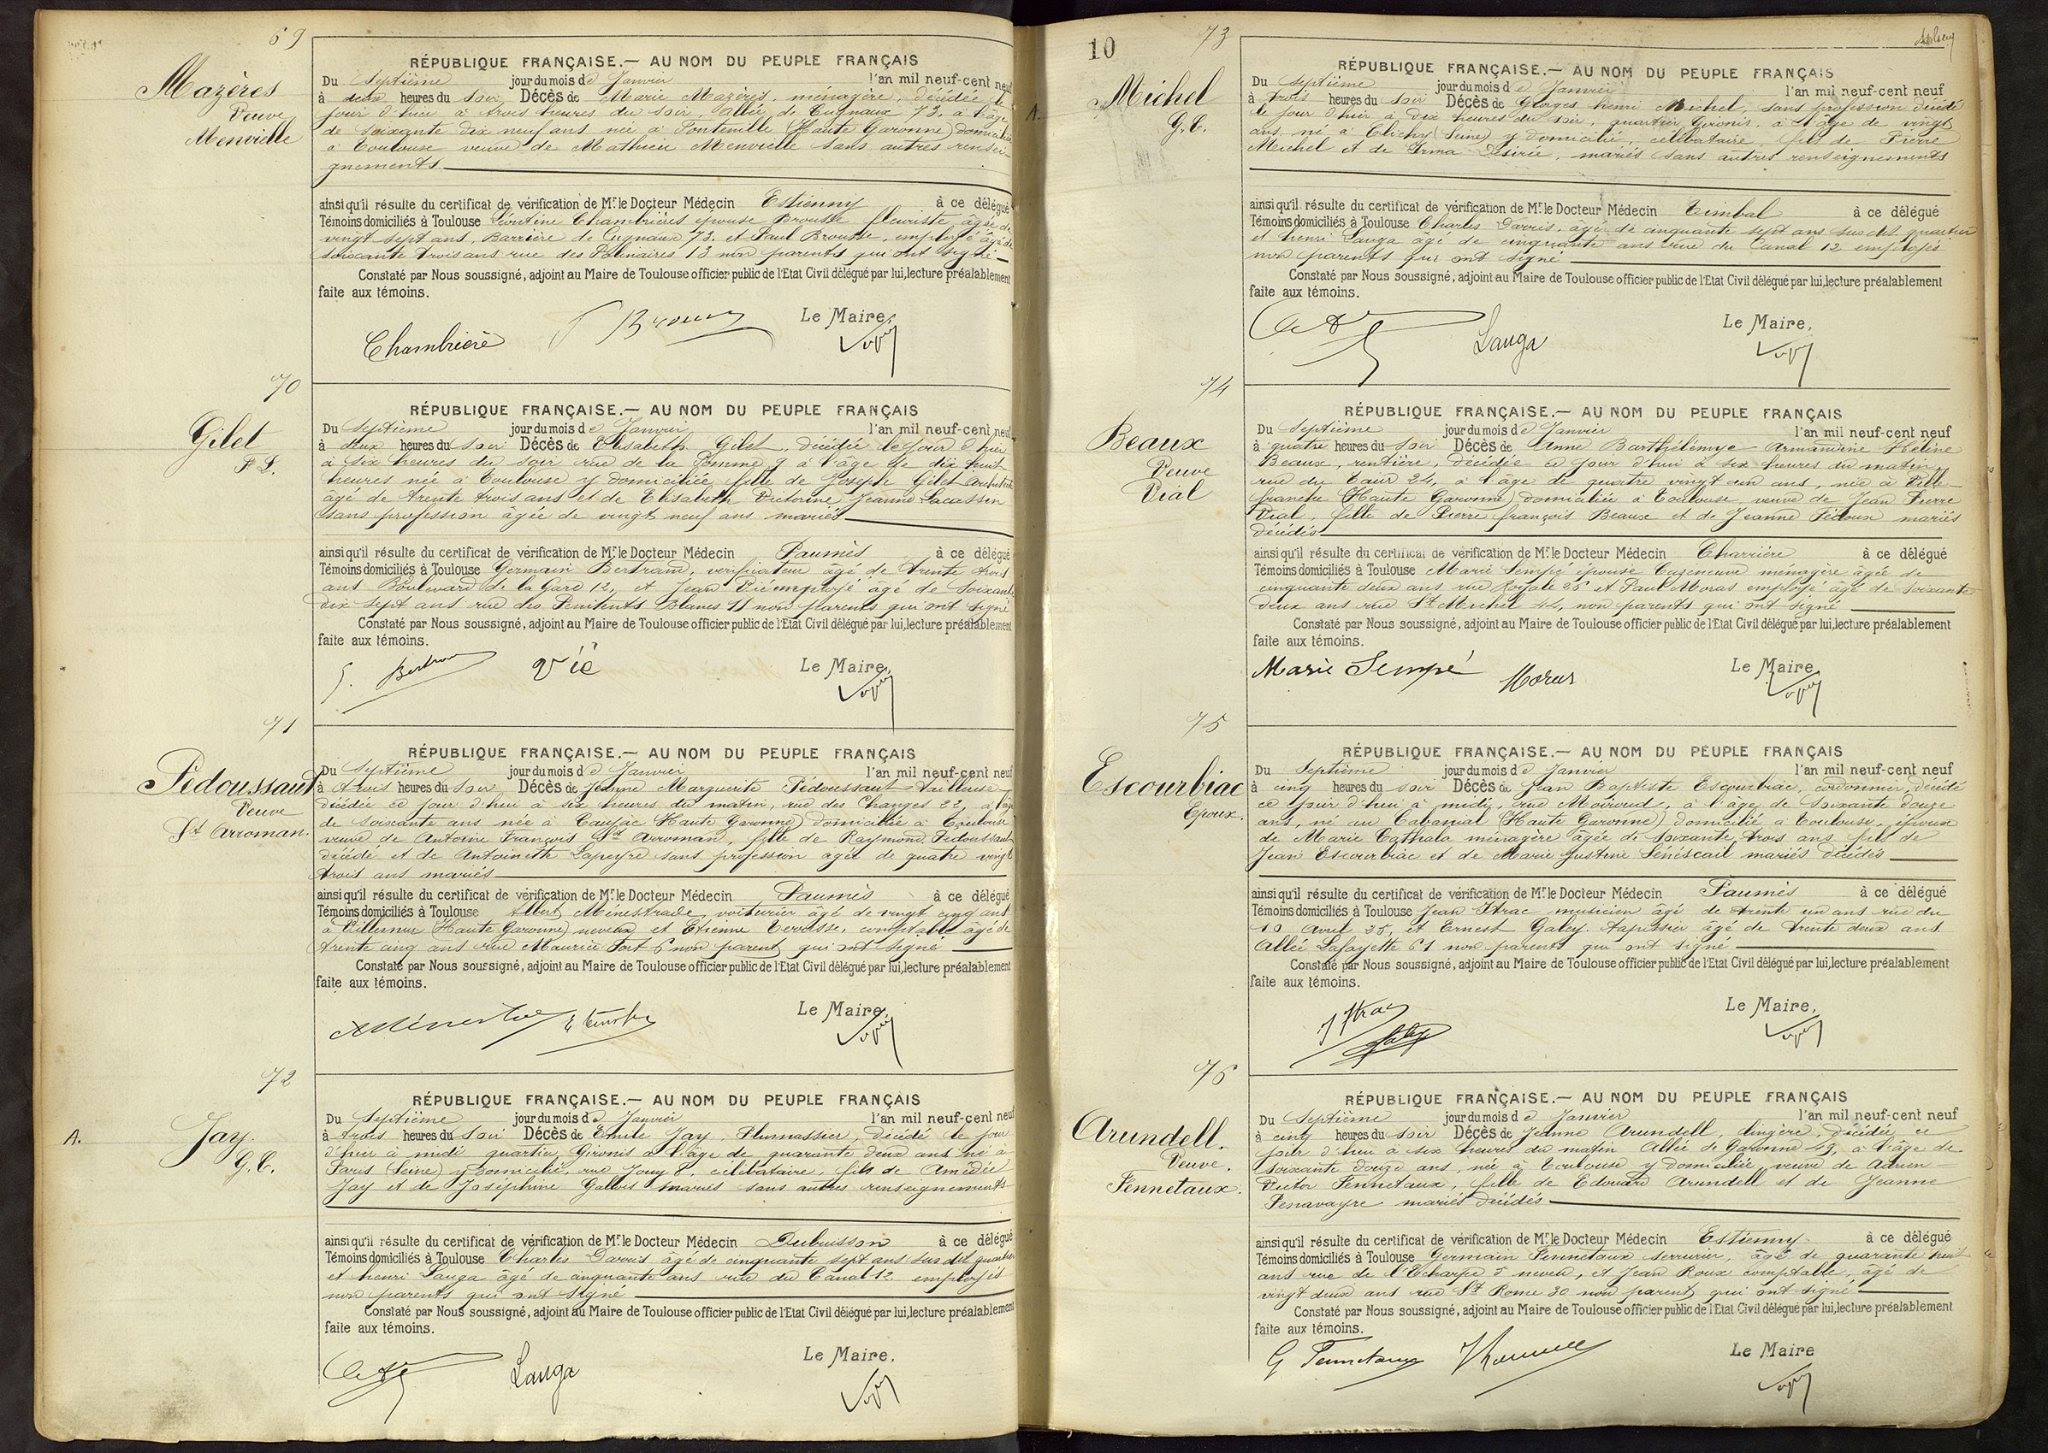 69
Mazères
Veuve
Menvielle
RÉPUBLIQUE FRANÇAISE.— AU NOM DU PEUPLE FRANÇAIS
Du Septième jour du mois de Janvier l'an mil neuf-cent neuf
à deux heures du soir Décès de Marie Mazères, ménagère, décédée le
jour d'hier à trois heures du soir, allée de Cugnaux 73, à l'âge
de soixante dix neuf ans née à Fontenille (Haute Garonne) domiciliée
à Toulouse veuve de Mathieu Menvielle sans autres rensei-
gnements
ainsi qu'il résulte du certificat de vérification de Mr. le Docteur Médecin Estienny à ce délégué
Témoins domiciliés à Toulouse Léontine Chambrières épouse Brousse fleuriste âgée de
vingt sept ans, Barrière de Cugnaux 73, et Paul Brousse, employé âgé de
soixante trois ans rue des 13 non parents qui ont signé
Constaté par Nous soussigné, adjoint au Maire de Toulouse officier public de l'Etat Civil délégué par lui, lecture préalablement
faite aux témoins.
Le Maire,
Chambrière
70
Gilet
F L.
RÉPUBLIQUE FRANÇAISE.— AU NOM DU PEUPLE FRANÇAIS
Du Septième jour du mois de Janvier l'an mil neuf-cent neuf
à deux heures du soir Décès de Elisabeth Gilet, décédée le jour d'hier
à six heures du soir rue de la Pomme à l'âge de dix huit
heures née à Toulouse y domiciliée fille de Joseph Gilet
âgé de trente trois ans et de Elisabeth Victorine Jeanne Lacassin
sans profession âgée de vingt neuf ans mariés
ainsi qu'il résulte du certificat de vérification de Mr. le Docteur Médecin Paumès à ce délégué
Témoins domiciliés à Toulouse Germain Bertrand, vérificateur âgé de trente trois
ans Boulevard de la Gare 12, et Jean Vié employé âgé de soixante
dix sept ans rue des Pénitents Blancs 11 non parents qui ont signé
Constaté par Nous soussigné, adjoint au Maire de Toulouse officier public de l'Etat Civil délégué par lui, lecture préalablement
faite aux témoins.
Le Maire,
Vié
71
Pédoussaut
Veuve
St Arroman.
RÉPUBLIQUE FRANÇAISE.— AU NOM DU PEUPLE FRANÇAIS
Du Septième jour du mois de Janvier l'an mil neuf-cent neuf
à trois heures du soir Décès de Jeanne Marguerite Pédoussaut tailleuse
décédée ce jour d'hui à six heures du matin, rue des Changes 22, à l'âge
de soixante ans née à (Haute Garonne) domiciliée à Toulouse
veuve de Antoine François St Arroman, fille de Raymond Pédoussaut
décédé et de Antoinette Lapeyre sans profession âgée de quatre vingt
trois ans mariés
ainsi qu'il résulte du certificat de vérification de Mr. le Docteur Médecin Paumès à ce délégué
Témoins domiciliés à Toulouse Albert voiturier âgé de vingt cinq ans
à Villemur (Haute Garonne) neveu et Etienne comptable âgé de
trente cinq ans rue Maurice 6 non parent, qui ont signé
Constaté par Nous soussigné, adjoint au Maire de Toulouse officier public de l'Etat Civil délégué par lui, lecture préalablement
faite aux témoins.
Le Maire,
72
A.
Jay.
G. C.
RÉPUBLIQUE FRANÇAISE.— AU NOM DU PEUPLE FRANÇAIS
Du Septième jour du mois de Janvier l'an mil neuf-cent neuf
à trois heures du soir Décès de Emile Jay, Plumassier, décédé le jour
d'hier à midi quartier Gironis à l'âge de quarante deux ans né à
Paris (Seine) y domicilié, rue célibataire, fils de Amédée
Jay et de Joséphine Gallois mariés sans autres renseignements
ainsi qu'il résulte du certificat de vérification de Mr. le Docteur Médecin Dubuisson à ce délégué
Témoins domiciliés à Toulouse Charles Davois âgé de cinquante sept ans sus dit quartier
et henri Langa âgé de cinquante ans rue du Canal 12 employés
non parents qui ont signé
Constaté par Nous soussigné, adjoint au Maire de Toulouse officier public de l'Etat Civil délégué par lui, lecture préalablement
faite aux témoins.
Le Maire.
Langa
10
73
A.
Michel
G. C.
RÉPUBLIQUE FRANÇAISE.— AU NOM DU PEUPLE FRANÇAIS
Du Septième jour du mois de Janvier l'an mil neuf-cent neuf
à trois heures du soir Décès de Georges henri Michel, sans profession décédé
le jour d'hier à dix heures du soir, quartier Gironis, à l'âge de vingt
ans, né à Clichy (Seine) y domicilié, célibataire, fils de Pierre
Michel et de Irma Désirée, mariés sans autres renseignements
ainsi qu'il résulte du certificat de vérification de Mr. le Docteur Médecin Timbal à ce délégué
Témoins domiciliés à Toulouse Charles Davois, âgé de cinquante sept ans sus dit quartier
et henri Langa âgé de cinquante ans rue du Canal 12 employés
non parents qui ont signé
Constaté par Nous soussigné, adjoint au Maire de Toulouse officier public de l'Etat Civil délégué par lui, lecture préalablement
faite aux témoins.
Le Maire,
Langa
74
Beaux
Veuve
Vial
RÉPUBLIQUE FRANÇAISE.— AU NOM DU PEUPLE FRANÇAIS
Du Septième jour du mois de Janvier l'an mil neuf-cent neuf
à quatre heures du soir Décès de Anne Barthélémye Armandine Hélène
Beaux, rentière, décédée ce jour d'hui à six heures du matin,
rue du Taur 24, à l'âge de quatre vingt un ans, née à Ville-
franche (Haute Garonne) domiciliée à Toulouse, veuve de Jean Pierre
Vial, fille de Pierre françois Beaux et de Jeanne Fédoux mariés
décédés
ainsi qu'il résulte du certificat de vérification de Mr. le Docteur Médecin Charrière à ce délégué
Témoins domiciliés à Toulouse Marie Sempé épouse Cazeneuve ménagère âgée de
cinquante deux ans, rue Royale 25 et Paul Moras employé âgé de soixante
deux ans rue St Michel 44, non parents qui ont signé
Constaté par Nous soussigné, adjoint au Maire de Toulouse officier public de l'Etat Civil délégué par lui, lecture préalablement
faite aux témoins.
Le Maire,
Marie Sempé Moras
75
Escourbiac
Epoux.
RÉPUBLIQUE FRANÇAISE.— AU NOM DU PEUPLE FRANÇAIS
Du Septième jour du mois de Janvier l'an mil neuf-cent neuf
à cinq heures du soir Décès de Jean Baptiste Escourbiac, cordonnier, décédé
ce jour d'hui à midi, rue Moiroud, à l'âge de soixante douze
ans, né au Cabanial (Haute Garonne) domicilié à Toulouse, époux
de Marie Cathala ménagère âgée de soixante trois ans, fils de
Jean Escourbiac et de Marie Justine Sénéscail mariés décédés
ainsi qu'il résulte du certificat de vérification de Mr. le Docteur Médecin Paumès à ce délégué
Témoins domiciliés à Toulouse Jean Strac musicien âgé de trente un ans rue du
10 Avril 25, et Ernest Galey, tapissier âgé de trente deux ans
Allée Lafayette 61 non parents qui ont signé
Constaté par Nous soussigné, adjoint au Maire de Toulouse officier public de l'Etat Civil délégué par lui, lecture préalablement
faite aux témoins.
Le Maire,
76
Arundell.
Veuve.
Fennetaux.
RÉPUBLIQUE FRANÇAISE.— AU NOM DU PEUPLE FRANÇAIS
Du Septième jour du mois de Janvier l'an mil neuf-cent neuf
à cinq heures du soir Décès de Jeanne Arundell, lingère, décédée ce
jour d'hui à six heures du matin Allée de Garonne 43, à l'âge de
soixante douze ans, née à Toulouse y domiciliée, veuve de Adrien-
Victor Fennetaux, fille de Edouard Arundell et de Jeanne
Penavayre mariés décédés
ainsi qu'il résulte du certificat de vérification de Mr. le Docteur Médecin Estienny à ce délégué
Témoins domiciliés à Toulouse Germain Fennetaux serrurier, âgé de quarante huit
ans rue de l'Echarpe 5 neveu, et Jean Roux comptable, âgé de
vingt deux ans rue St Rome 30 non parent, qui ont signé
Constaté par Nous soussigné, adjoint au Maire de Toulouse officier public de l'Etat Civil délégué par lui, lecture préalablement
faite aux témoins.
Le Maire
G Fennetaux